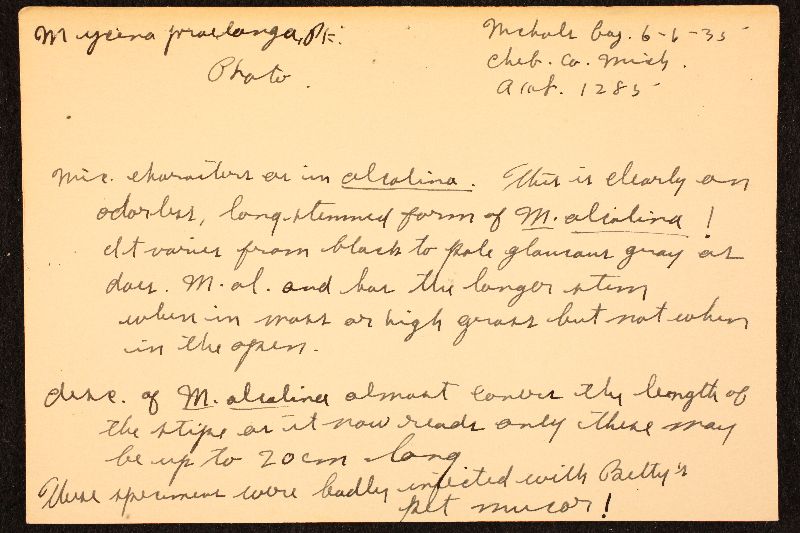 Mycena praelonga, Pk.
Photo
Nichols bog. 6-6-35
Cheb. Co. Mich.
1285
Mic. characters as in alcalina. This is clearly an
odorless, long-stemmed form of M. alcalina!
It varies from black to pale glaucous gray as
does M. al. and has the longer stem
when in moss or high grass but not when
in the open.
Desc. of M. alcalina almost covers the length of
the stipe as it now reads only these may
be up to 20cm long
These specimens were badly infected with Betty's
pet mucor!